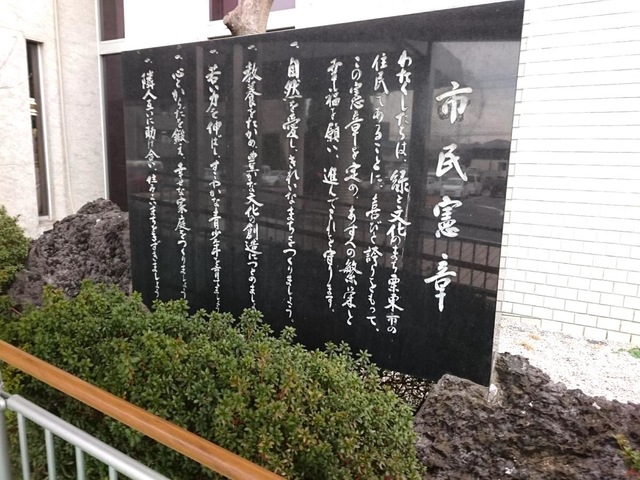 市民憲章
わたくしたちは、緑と文化のまち栗東市の
住民であることに、喜びと誇りをもって、
この憲章を定め、あすへの繁栄と
幸福を願い、進んでこれを守ります。
一、自然を愛し、きれいなまちをつくりましょう。
一、教養をたかめ、豊かな文化の創造につとめましょう。
一、若い力を伸ばし、すこやかな青少年を育てましょう。
一、心とからだを鍛え、幸せな家庭をつくりましょう。
一、隣人互いに助け合い、住みよいまちをきずきましょう。